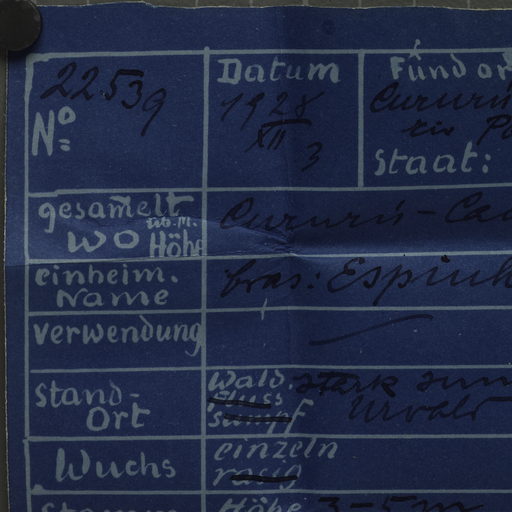 22539
Nº
Datum
1928
XII
3
Fundort
Cururú
rio
Staat:
gesam̄elt
wo
üb. M.
Höhe
Cururú -
einheim.
Name
bras: Espinh
Verwendung
Stand-
Ort
Wald.
Fluss
Sumpf
stark
Urwald
Wuchs
einzeln
rasig
Stamm
Höhe 3-5 m